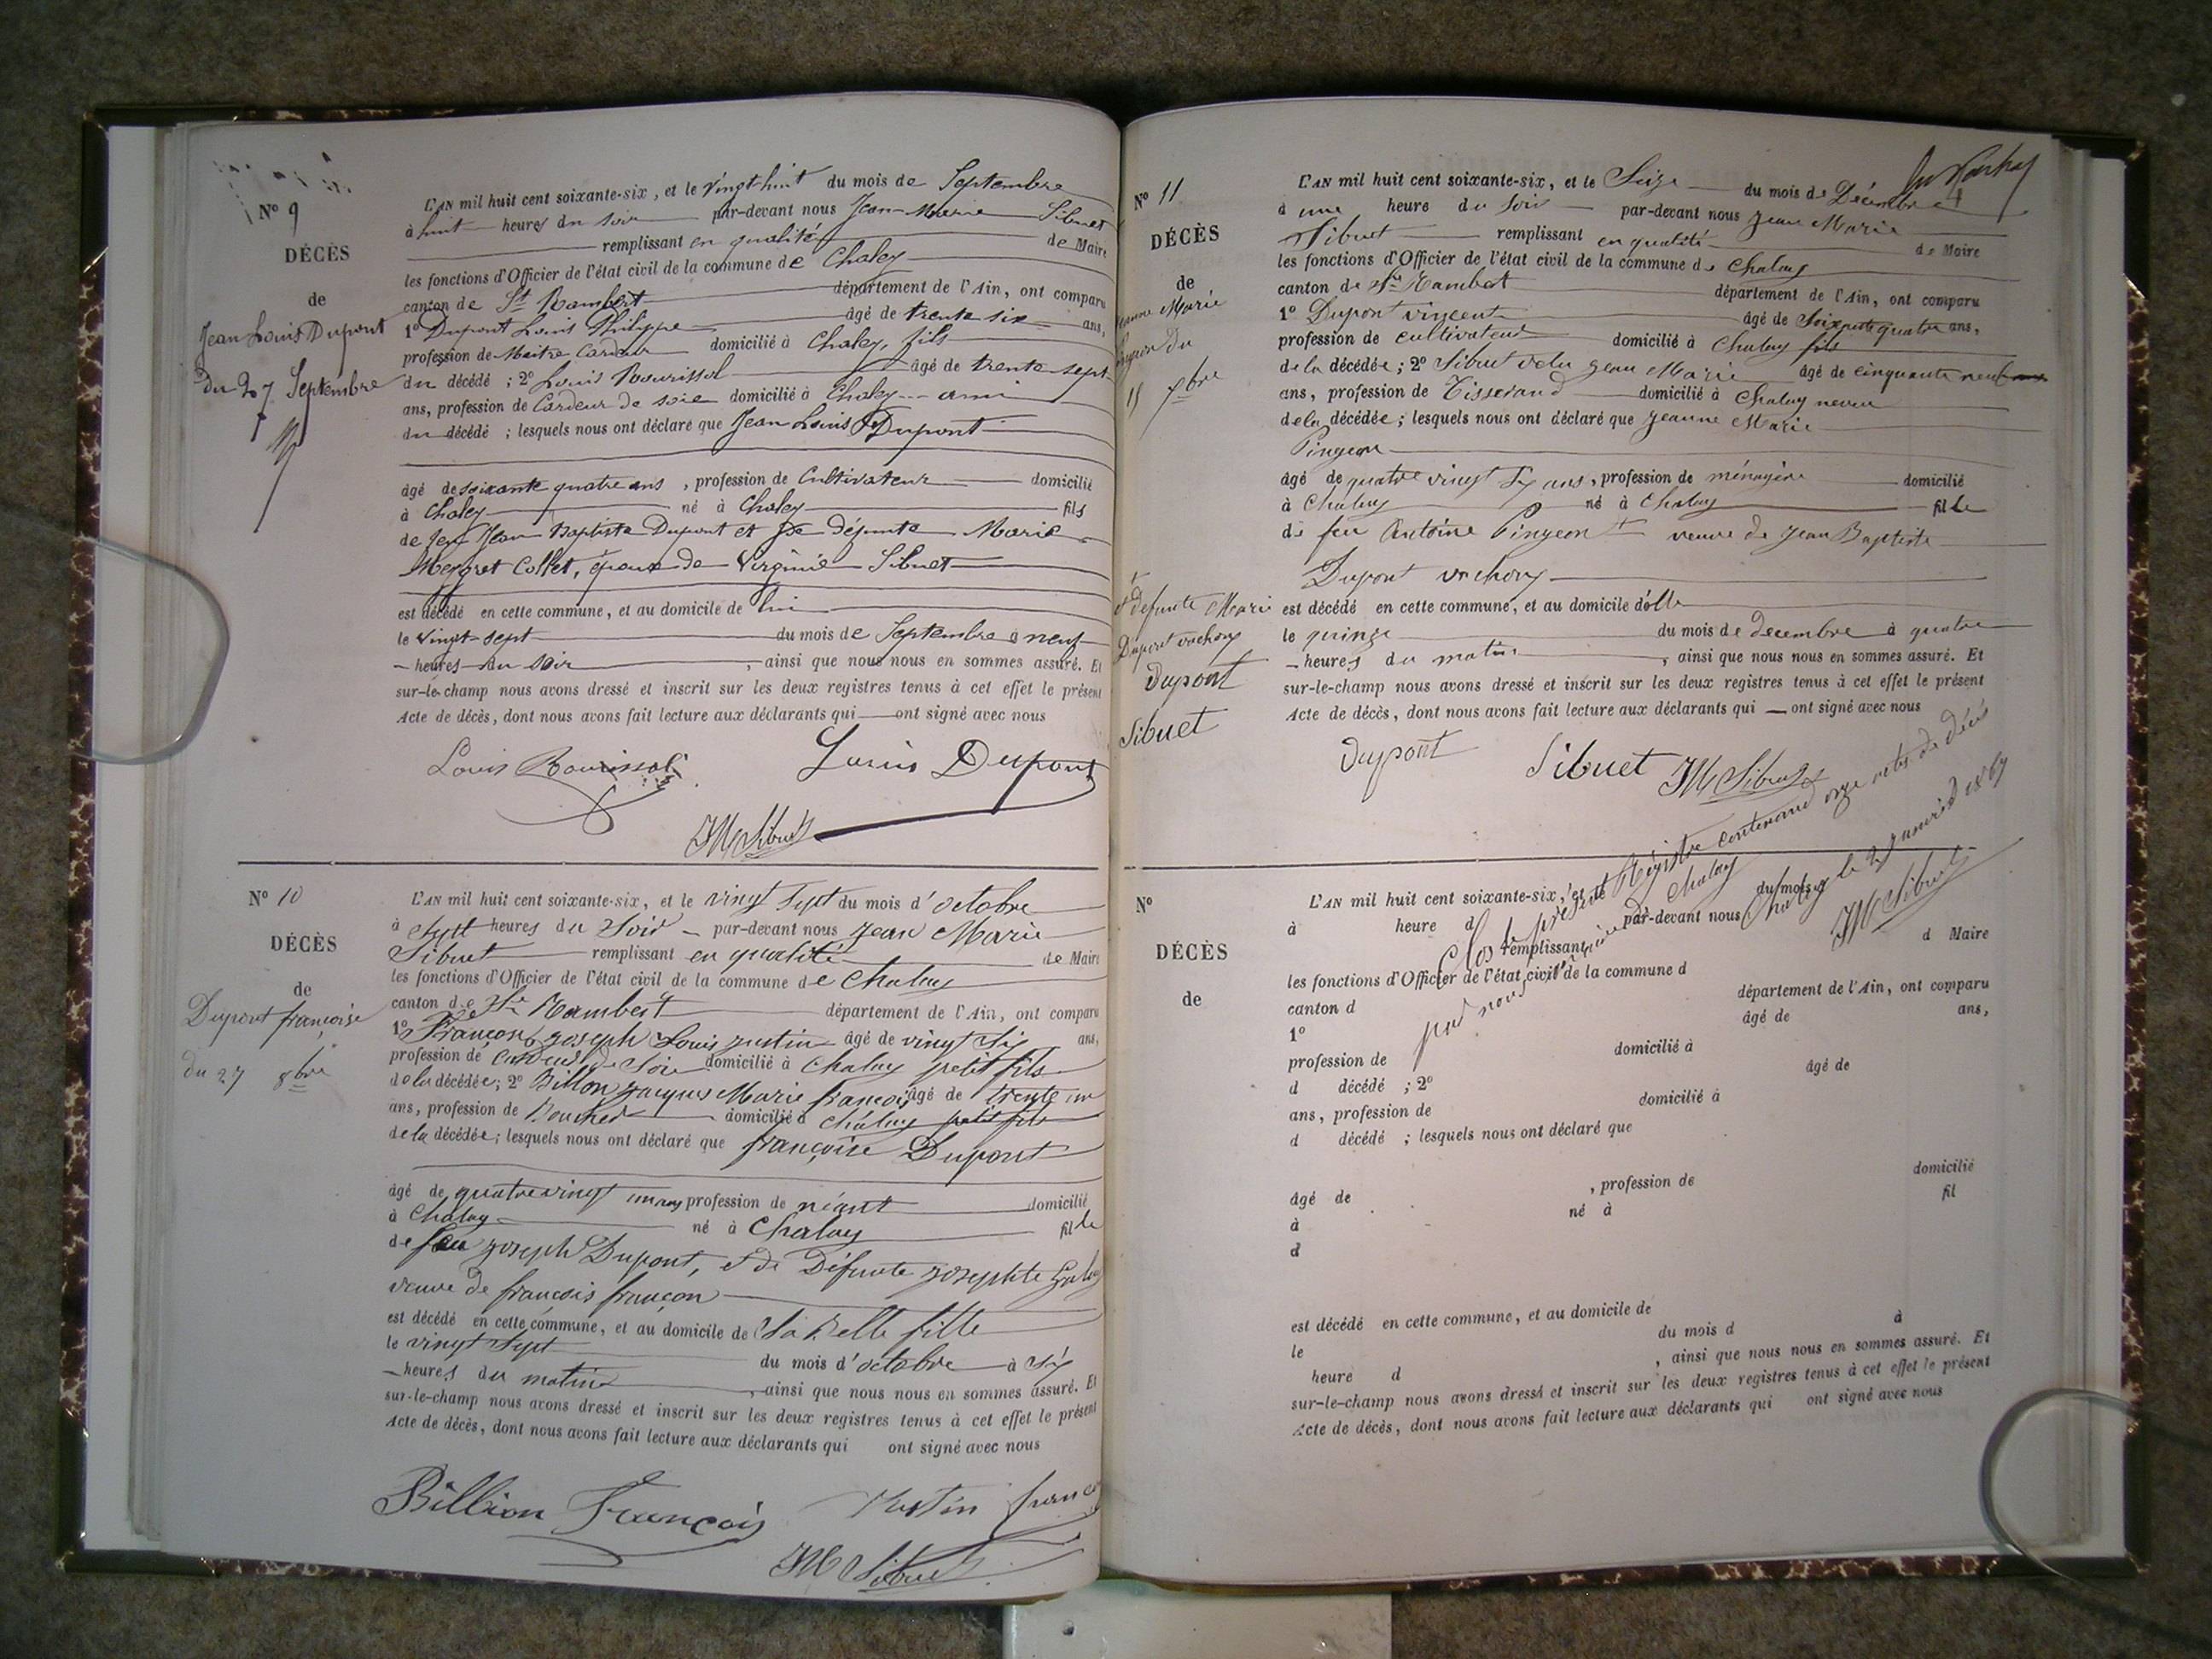 N° 9
DÉCÈS
de
Jean Louis Dupont
Du 27 Septembre
L'AN mil huit cent soixante-six, et le Vingt-huit du mois de Septembre
à huit heures du soir par-devant nous Jean-Marie Sibuet
remplissant en qualité de Maire
les fonctions d'Officier de l'état civil de la commune de Chaley
canton de St Rambert département de l'Ain, ont comparu
1° Dupont Louis Philippe âgé de trente six ans,
profession de Maitre Cardeur domicilié à Chaley, fils
du décédé ; 2° Louis Bourissol âgé de trente-sept
ans, profession de Cardeur de soie domicilié à Chaley ami
du décédé ; lesquels nous ont déclaré que Jean Louis Dupont
âgé de soixante quatre ans, profession de Cultivateur domicilié
à Chaley né à Chaley fils
de feu Jean Baptiste Dupont et de défunte Marie
Mergret Collet, époux de Virginie Sibuet
est décédé en cette commune, et au domicile de lui
le vingt-sept du mois de Septembre à neuf
heures du soir, ainsi que nous nous en sommes assuré. Et
sur-le-champ nous avons dressé et inscrit sur les deux registres tenus à cet effet le présent
Acte de décès, dont nous avons fait lecture aux déclarants qui ont signé avec nous
Louis Bourissol Louis Dupont
JM Sibuet
N° 10
DÉCÈS
de
Dupont françoise
du 27 8bre
L'AN mil huit cent soixante-six, et le vingt Sept du mois d'octobre
à Sept heures du Soir par-devant nous Jean Marie
Sibuet remplissant en qualité de Maire
les fonctions d'Officier de l'état civil de la commune de Chaley
canton de St Rambert département de l'Ain, ont comparu
1° Françon joseph Louis justin âgé de vingt Six ans,
profession de Cardeur de Soie domicilié à Chaley petit fils
de la décédée ; 2° Billon jacques Marie françois âgé de trente un
ans, profession de Boucher domicilié à Chaley petit fils
de la décédée ; lesquels nous ont déclaré que françoise Dupont
âgé de quatre vingt un ans profession de néant domicilié
à Chaley né à Chaley fille
de feu joseph Dupont, et de Défunte josephte
veuve de françois françon
est décédé en cette commune, et au domicile de Sa Belle fille
le vingt Sept du mois d'octobre à Six
heures du matin, ainsi que nous nous en sommes assuré. Et
sur-le-champ nous avons dressé et inscrit sur les deux registres tenus à cet effet le présent
Acte de décès, dont nous avons fait lecture aux déclarants qui ont signé avec nous
Billion François Justin
JM Sibuet
N° 11
DÉCÈS
de
Jeanne Marie
Pingeon du
15 Xbre
L'AN mil huit cent soixante-six, et le Seize du mois de Décembre
à une heure du Soir par-devant nous Jean Marie
Sibuet remplissant en qualité de Maire
les fonctions d'Officier de l'état civil de la commune de Chaley
canton de St Rambert département de l'Ain, ont comparu
1° Dupont vincent âgé de Soixante quatre ans,
profession de cultivateur domicilié à Chaley fils
de la décédée ; 2° Sibuet jean Marie âgé de cinquante neuf ans
ans, profession de Tisserand domicilié à Chaley neveu
de la décédée ; lesquels nous ont déclaré que jeanne Marie
Pingeon
âgé de quatre vingt Six ans, profession de ménagère domicilié
à Chaley né à Chaley fille
de feu Antoine Pingeon + veuve de Jean Baptiste
Dupont vachon
+
et défunte Marie
Dupont vachon
Dupont
Sibuet
est décédé en cette commune, et au domicile d'elle
le quinze du mois de decembre à quatre
heures du matin, ainsi que nous nous en sommes assuré. Et
sur-le-champ nous avons dressé et inscrit sur les deux registres tenus à cet effet le présent
Acte de décès, dont nous avons fait lecture aux déclarants qui ont signé avec nous
Dupont Sibuet JM Sibuet
Clos le présent Régistre contenant onze actes de décès
par nous Maire de Chaley Chaley le 2 janvier 1867
JM Sibuet
N°
DÉCÈS
de
L'AN mil huit cent soixante-six, et le du mois d
à heure d par-devant nous
remplissant d Maire
les fonctions d'Officier de l'état civil de la commune d
canton d département de l'Ain, ont comparu
1° âgé de ans,
profession de domicilié à
d décédé ; 2° âgé de
ans, profession de domicilié à
d décédé ; lesquels nous ont déclaré que
âgé de , profession de domicilié
à né à fil
d
est décédé en cette commune, et au domicile de
le du mois d à
heure d , ainsi que nous nous en sommes assuré. Et
sur-le-champ nous avons dressé et inscrit sur les deux registres tenus à cet effet le présent
Acte de décès, dont nous avons fait lecture aux déclarants qui ont signé avec nous